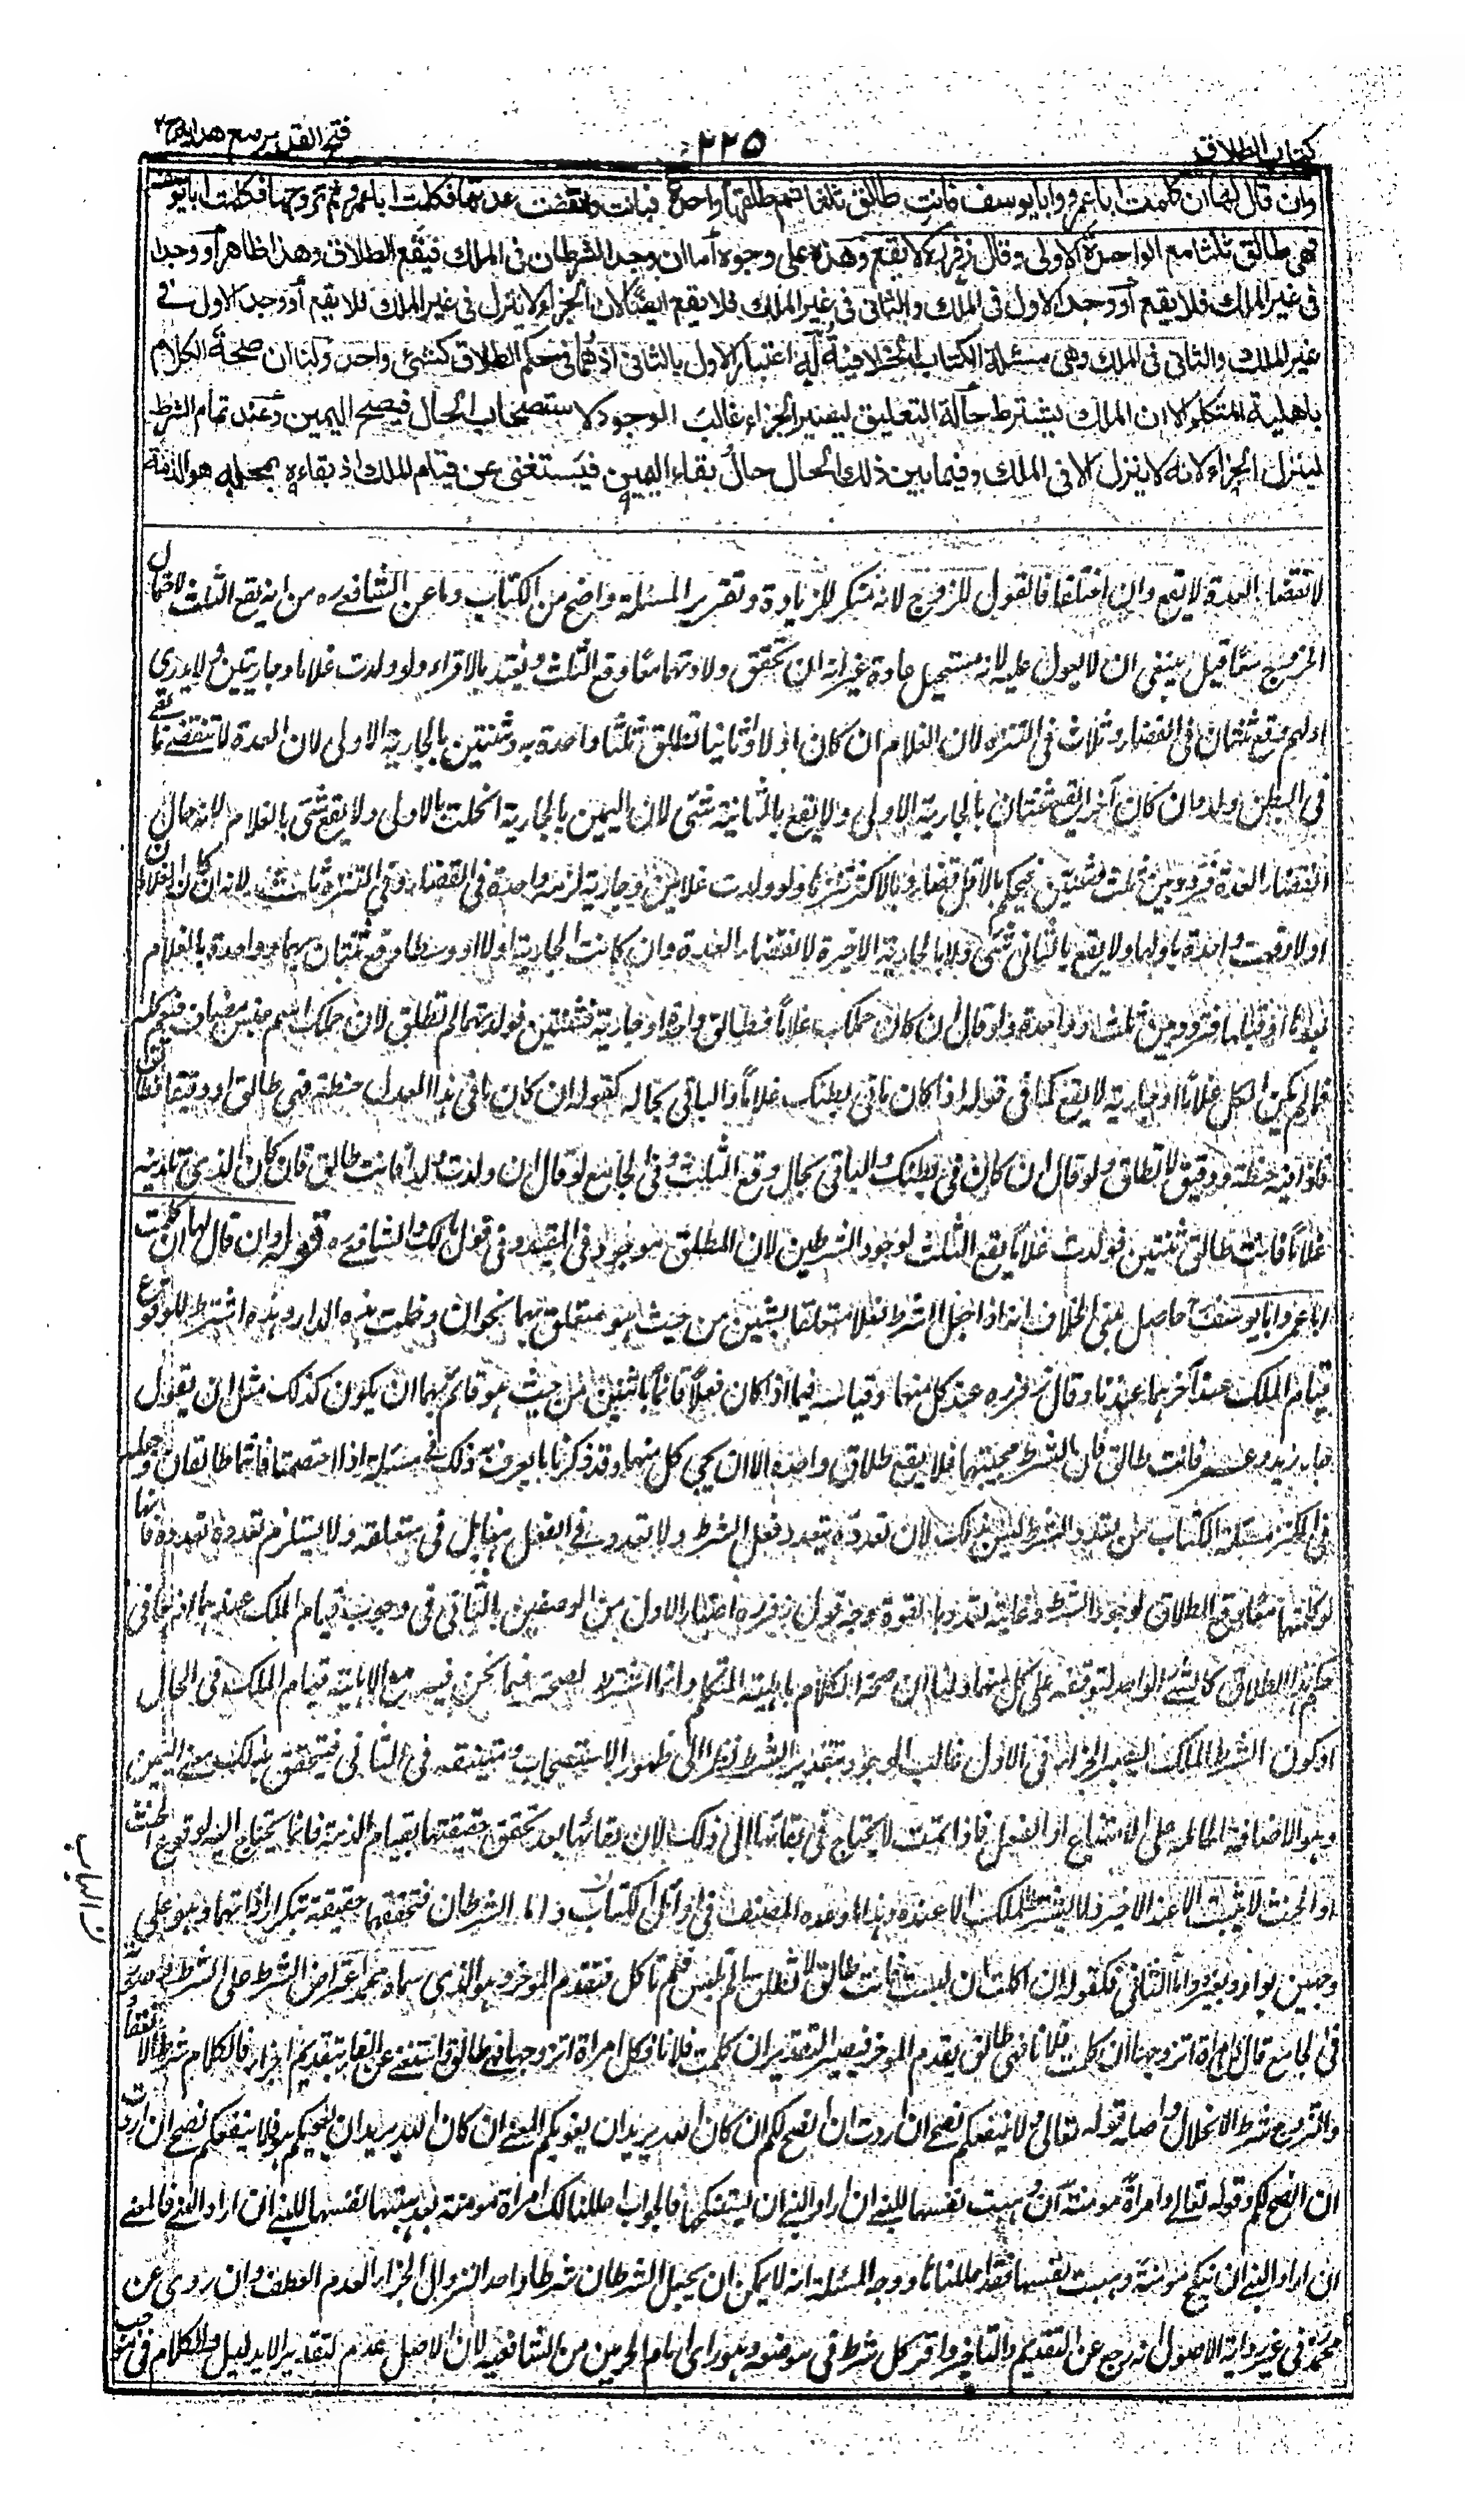 كتاب الطلاق
٢٢٥
فتح القدير مع هدايه ج٢
وان قال لها ان كلمت ابا عمرو وابا يوسف فانت طالق ثلثا ثم طلقها واحدة فبانت وانقضت عدتها فكلمت ابا عمرو ثم تزوجها فكلمت ابا يوسف
فهى طالق ثلثا مع الواحدة الاولى وقال زفر ره لا يقع وهذه على وجوه اما ان وجد الشرطان فى الملك فيقع الطلاق وهذا ظاهر او وجدا
فى غير الملك فلا يقع او وجد الاول فى الملك والثانى فى غير الملك فلا يقع ايضا لان الجزاء لا ينزل فى غير الملك فلا يقع او وجد الاول فى
غير الملك والثانى فى الملك وهى مسئلة الكتاب الخلافية له اعتبار الاول بالثانى اذ هما فى حكم الطلاق كشئ واحد ولنا ان صحة الكلام
باهلية المتكلم الا ان الملك يشترط حالة التعليق ليصير الجزاء غالب الوجود لاستصحاب الحال فيصح اليمين وعند تمام الشرط
لينزل الجزاء لانه لا ينزل الا فى الملك وفيما بين ذلك الحال حال بقاء اليمين فيستغنى عن قيام الملك اذ بقاءه بمحله هو الذمة
لانقضاء العدة لا يقع وان اختلفا فالقول للزوج لانه منكر للزيادة وتقرير المسئلة واضح من الكتاب وما عن الشافعى ره من انه يقع الثلث لاحتمال
الخروج معا قيل ينبغى ان لا يعول عليه لانه مستحيل عادة غير انه ان تحقق ولادتهما معا وقع الثلث وتعتد بالاقراء ولو ولدت غلاما وجاريتين ولا يدرى
اولهم وقع ثنتان فى القضاء وثلاث فى التنزه لان الغلام ان كان اولا او ثانيا تطلق ثلثا واحدة به وثنتين بالجارية الاولى لان العدة لا تنقضى ما بقى
فى البطن ولد وان كان آخرا يقع ثنتان بالجارية الاولى ولا يقع بالثانية شئ لان اليمين بالجارية انحلت بالاولى ولا يقع شئ بالغلام لانه حال
انقضاء العدة فتردد بين ثلث وثنتين فيحكم بالاقل قضاء وبالاكثر تنزها ولو ولدت غلامين وجارية لزمه واحدة فى القضاء وفى التنزه ثلث لانه ان كان الغلامان
اولا وقعت واحدة باولهما ولا يقع بالثانى شئ ولا بالجارية الاخيرة لانقضاء العدة وان كانت الجارية اولا او وسطا وقع ثنتان بها وواحدة بالغلام
بعدها او قبلها فتردد بين ثلث وواحدة ولو قال ان كان حملك غلاما فطالق واحدة او جارية فثنتين فولدتهما لم تطلق لان حملك اسم جنس مضاف فيعم كله
فما لم يكن الكل غلاما او جارية لا يقع كما فى قوله اذا كان ما فى بطنك غلاما والباقى بحاله كقوله ان كان ما فى هذا العدل حنطة فهى طالق او دقيقا فطالق
فاذا فيه حنطة ودقيق لا تطلق ولو قال ان كان فى بطنك والباقى بحاله وقع الثلث وفى الجامع لو قال ان ولدت ولدا فانت طالق فان كان الذى تلدينه
غلاما فانت طالق ثنتين فولدت غلاما يقع الثلث لوجود الشرطين لان المطلق موجود فى المقيد وفى قول مالك والشافعى ره قوله وان قال لها ان كلمت
ابا عمرو وابا يوسف حاصل هذا الخلاف انه اذا جعل الشرط فعلا متعلقا بشيئين من حيث هو متعلق بهما نحو ان دخلت هذه الدار وهذه اشترط للوقوع
قيام الملك عند آخرهما عندنا وقال زفر ره عند كل منهما وقياسه فيما اذا كان فعلا قائما باثنين من حيث هو قائم بهما ان يكون كذلك مثل ان يقول
جاء زيد وعمرو فانت طالق فان الشرط مجيئهما فلا يقع طلاق واحدة الا ان يجئ كل منهما وقد ذكرنا ما يعرف ذلك فى مسئلة اذا حضتما فانتما طالقان وجعله
فى الكنز مسئلة الكتاب من تعدد الشرط ليس بذلك لان تعدده بتعدد فعل الشرط ولا تعدد فى الفعل هنا بل فى متعلقه ولا يستلزم تعدده تعدده فانها
لو كلمتهما معا وقع الطلاق لوجود الشرط وغايته تعدده بالقوة وجه قول زفر ره اعتبار الاول من الوصفين بالثانى فى وجوب قيام الملك عنده بما انهما فى
حكم هذا الطلاق كالشئ الواحد لتوقفه على كل منهما ولنا ان صحة الكلام باهلية المتكلم وانما اشترط لصحته فيما نحن فيه مع الاهلية قيام الملك فى الحال
او كون الشرط الملك ليصير الجزاء فى الاول غالب الوجود بتقدير الشرط نظرا الى ظهور الاستصحاب ومتيقنه فى الثانى فيتحقق بذلك معنى اليمين
وهو الاضافة الحاملة على الامتناع او الفعل فاذا تمت لا يحتاج فى بقائها الى ذلك لان بقائها بعد تحقق حقيقتها بقيام الذمة فانما يحتاج اليه لوقوع الحنث
او الحنث لا يثبت الا عند الاخير فلا يشترط الملك الا عنده وهذا ما وعده المصنف فى اوائل الكتاب واما الشرطان فتحققهما حقيقة بتكرار اداتهما وهو على
وجهين بواو وبغيره واما الثانى فكقوله ان اكلت ان لبست فانت طالق لا تطلق ما لم تلبس فلم تاكل فتقدم المؤخر وهو الذى سماه محمد اعتراض الشرط على الشرط
فى الجامع قال كل امرأة اتزوجها ان كلمت فلانا فهى طالق يقدم المؤخر فيصير التقدير ان كلمت فلانا فكل امرأة اتزوجها فهى طالق استغنى عن الفاء بتقديم الجزاء فالكلام شرط الانعقاد
والتزوج شرط الانحلال واصله قوله تعالى ولا ينفعكم نصحى ان اردت ان انصح لكم ان كان الله يريد ان يغويكم المعنى ان كان الله يريد ان يغويكم فلا ينفعكم نصحى ان اردت
ان انصح لكم وقوله تعالى وامرأة مؤمنة ان وهبت نفسها للنبى ان اراد النبى ان يستنكحها فالجواب احللنا لك امرأة مؤمنة بهبتها نفسها للنبى ان اراد النبى فالمعنى
ان اراد النبى ان ينكح مؤمنة وهبت نفسها فقد احللناها ووجه المسئلة انه لا يمكن ان يجعل الشرطان شرطا واحدا لنزول الجزاء لعدم العطف وان روى عن
محمد فى غير رواية الاصول انه رجع عن التقديم والتاخير واقر كل شرط فى موضعه وهو راى امام الحرمين من الشافعية لان الاصل عدم التقدير الا بدليل والكلام فى